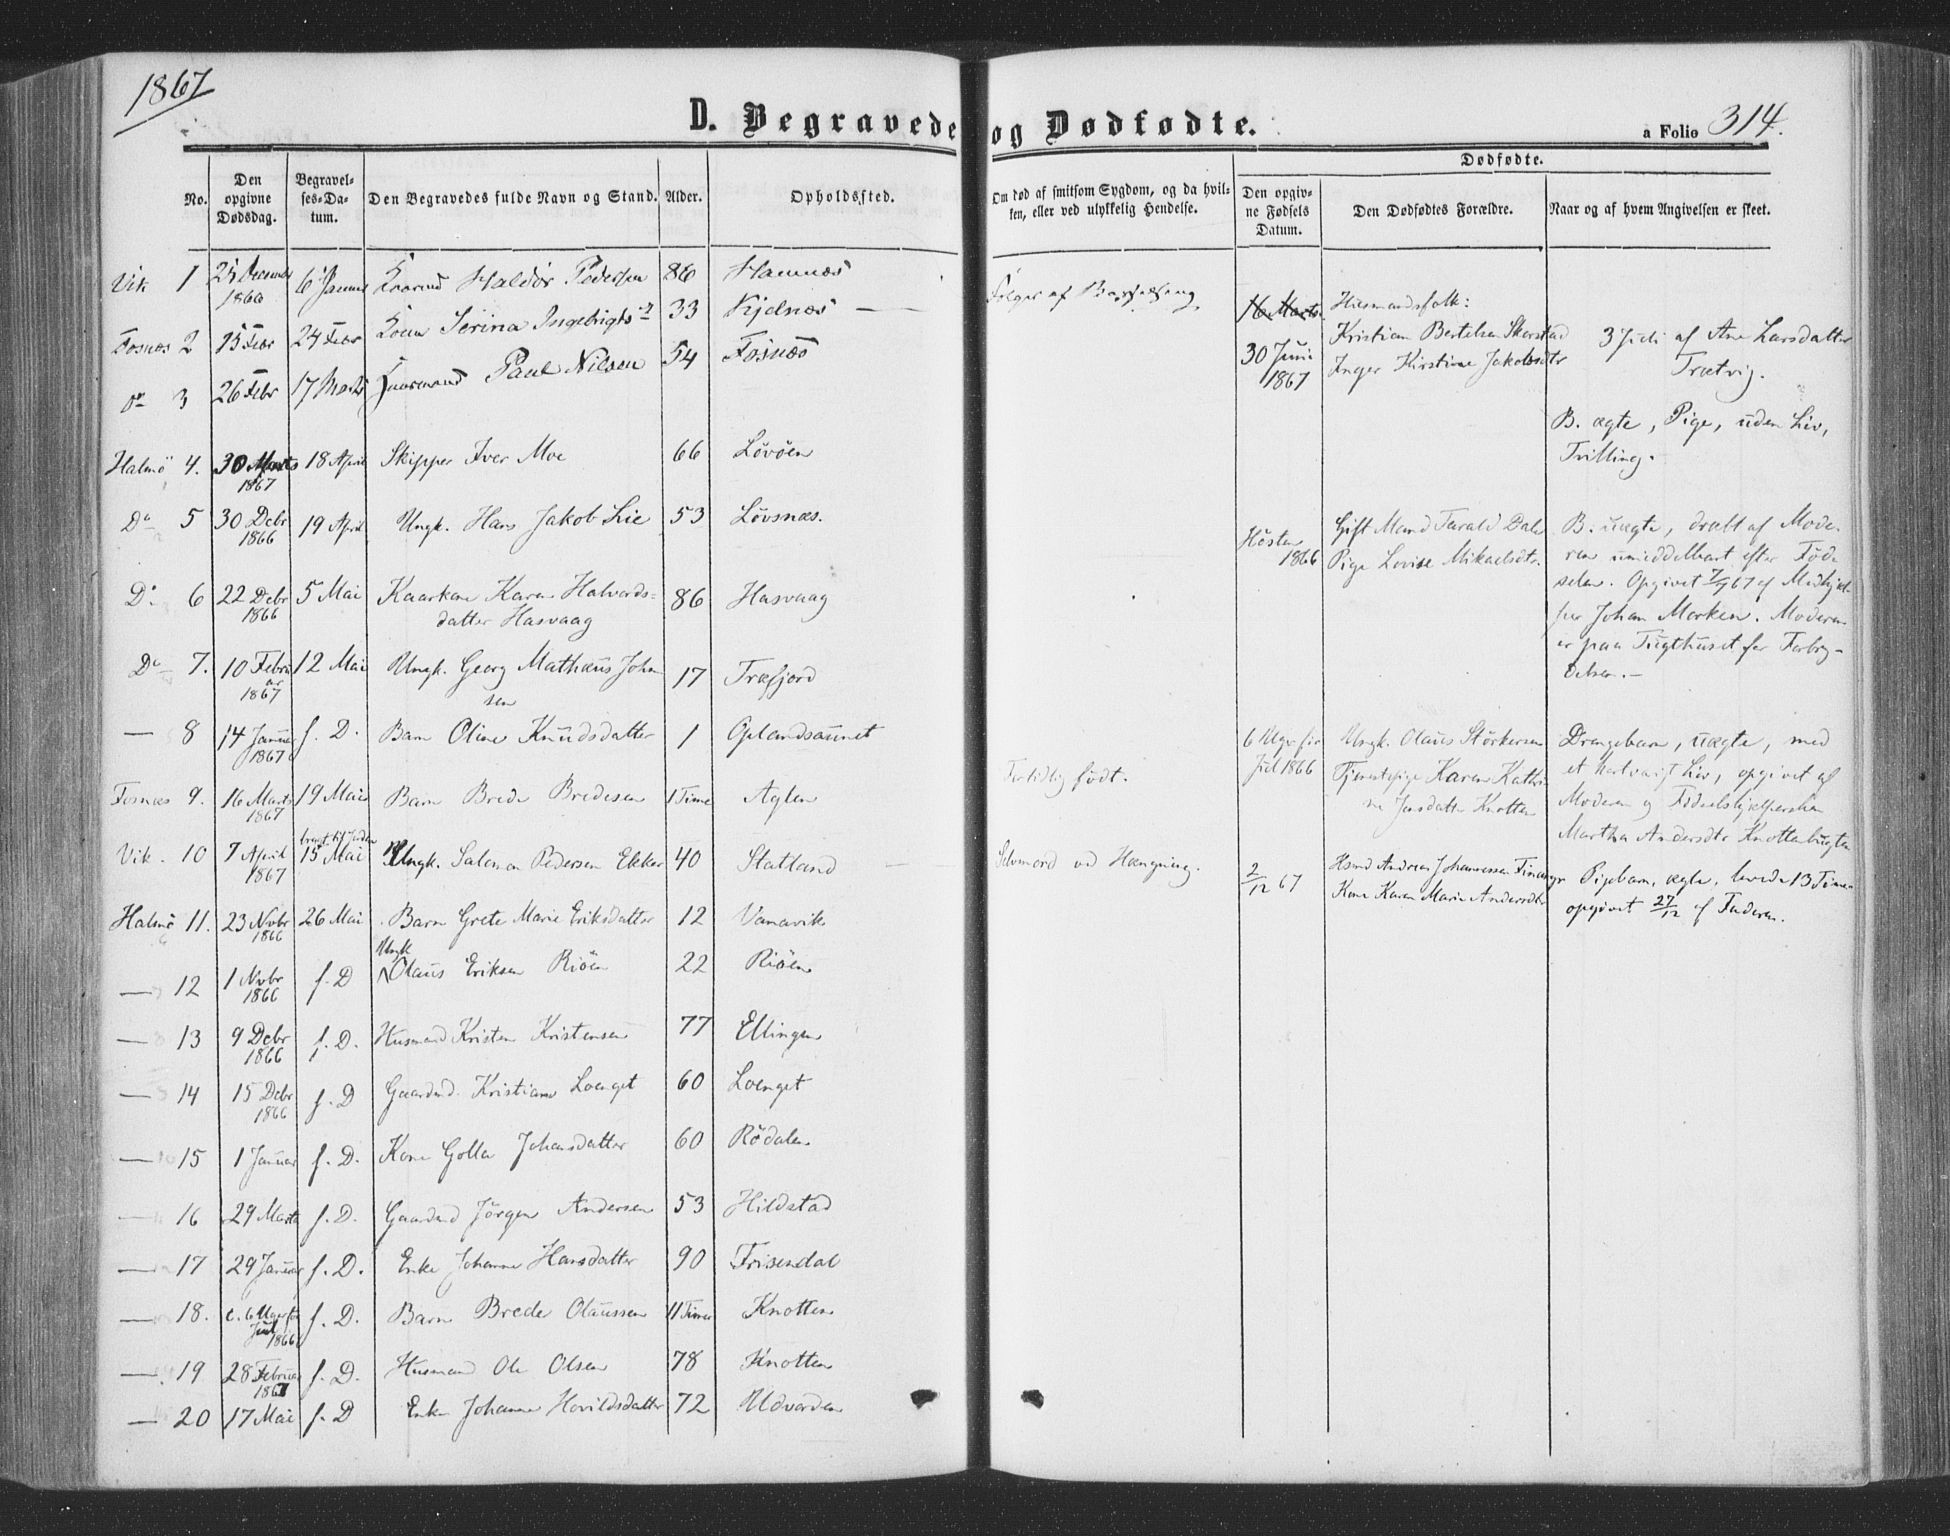 1867
D. Begravede og Dødfødte.
a Folio 314.
No.
Den opgivne Dødsdag.
Begravelses-Datum.
Den Begravedes fulde Navn og Stand.
Alder.
Opholdssted.
Om død af smitsom Sygdom, og da hvilken, eller ved ulykkelig Hendelse.
Dødfødte.
Den opgivne Fødsels Datum.
Den Dødfødtes Forældre.
Naar og af hvem Angivelsen er skeet.
Vik 1 1866 6 Haldor Pedersen 86 Hamnæs
Fosnæs 2 15 Febr 24 Febr Kone Serina Ingebrigtsd 33 Kjelnæs — Følger af Barselseng
Do 3 26 Febr 17 Marts Paul Nilsen 54 Fosnæs
Halmø 4. 30 Marts 1867 18 April Skipper Iver Moe 66 Løvøen
Do 5 30 Debr 1866 19 April Ungk. Hans Jakob Lie 53 Løvsnæs.
Do 6 22 Debr 1866 5 Mai Kaarkone Karen Halvords=
datter Hasvaag 86 Hasvaag
Do 7. 10 Februar 1867 12 Mai Ungk. Georg Mathæus John
sen 17 Træfjord
— 8 14 Januar 1867 f. D. Barn Oline Knudsdatter 1 Oplandsaunet
Fosnæs 9. 16 Marts 1867 19 Mai Barn Brede Bredesen 1 Time Aglen Fortidlig født.
Vik. 10 7 April 1867 15 Mai Ungk. Salomon Pedersen Ekker 40 Statland — Selvmord ved Hængning.
Halmø 11. 23 Nvbr 1866 26 Mai Barn Grete Marie Eriksdatter 12 Vanavik
— 12 1 Nvbr 1866 f. D Ungk Olaus Eriksen Riøen 22 Riøen
— 13 9 Debr 1866 f. D. Husmand Kristen Kristensen 77 Ellingen
— 14 15 Debr 1866 f. D Gaardmd. Kristian Loenget 60 Loenget
— 15 1 Januar f. D. Kone Golla Johansdatter 60 Rødalen
— 16 29 Marts f. D. Gaardmd Jørgen Andersen 53 Hildstad
— 17 29 Januar f. D. Enke Johanna Hansdatter 90 Frisendal
— 18. c. 6 Uger før Jul 1866 f. D. Barn Brede Olaussen 11 Timer Knotten
— 19 28 Februar 1867 f. D. Husmand Ole Olsen 78 Knotten
— 20 17 Mai f. D Enke Johanna Hovildsdatter 72 Udvorden
16 Marts
30 Juni
1867
Husmandsfolk:
Kristian Bertelsen Skorstad
Inger Kirstine Jakobsdtr
3 Juli af Ane Larsdatter
Trætvig.
B. ægte, Pige, uden Liv,
Tvilling.
Høsten
1866
Gift Mand Tarald Dale
Pige Lovise Mikaelsdtr.
B. uægte, dræbt af Mode-
ren umiddelbart efter Fød-
selen. Opgivet 7/9 67 af Medhjel-
per Johan Morken. Moderen
er paa Tugthuset for Forbry-
delsen.—
6 Uger før
Jul 1866
Ungk. Olaus Størkersen
Tjenestepige Karen Kathri-
ne Jensdatter Knotten
Drengebarn, uægte, med
et kortvarigt Liv, opgivet af
Moderen og Fødselshjælpersken
Martha Andersdtr Knottenbugten
2/12 67
Hsmd Andreas Johannessen
Kone Karen Marie Andersdtr
Pigebarn, ægte, levede 13 Timer
opgivet 27/12 af Faderen.